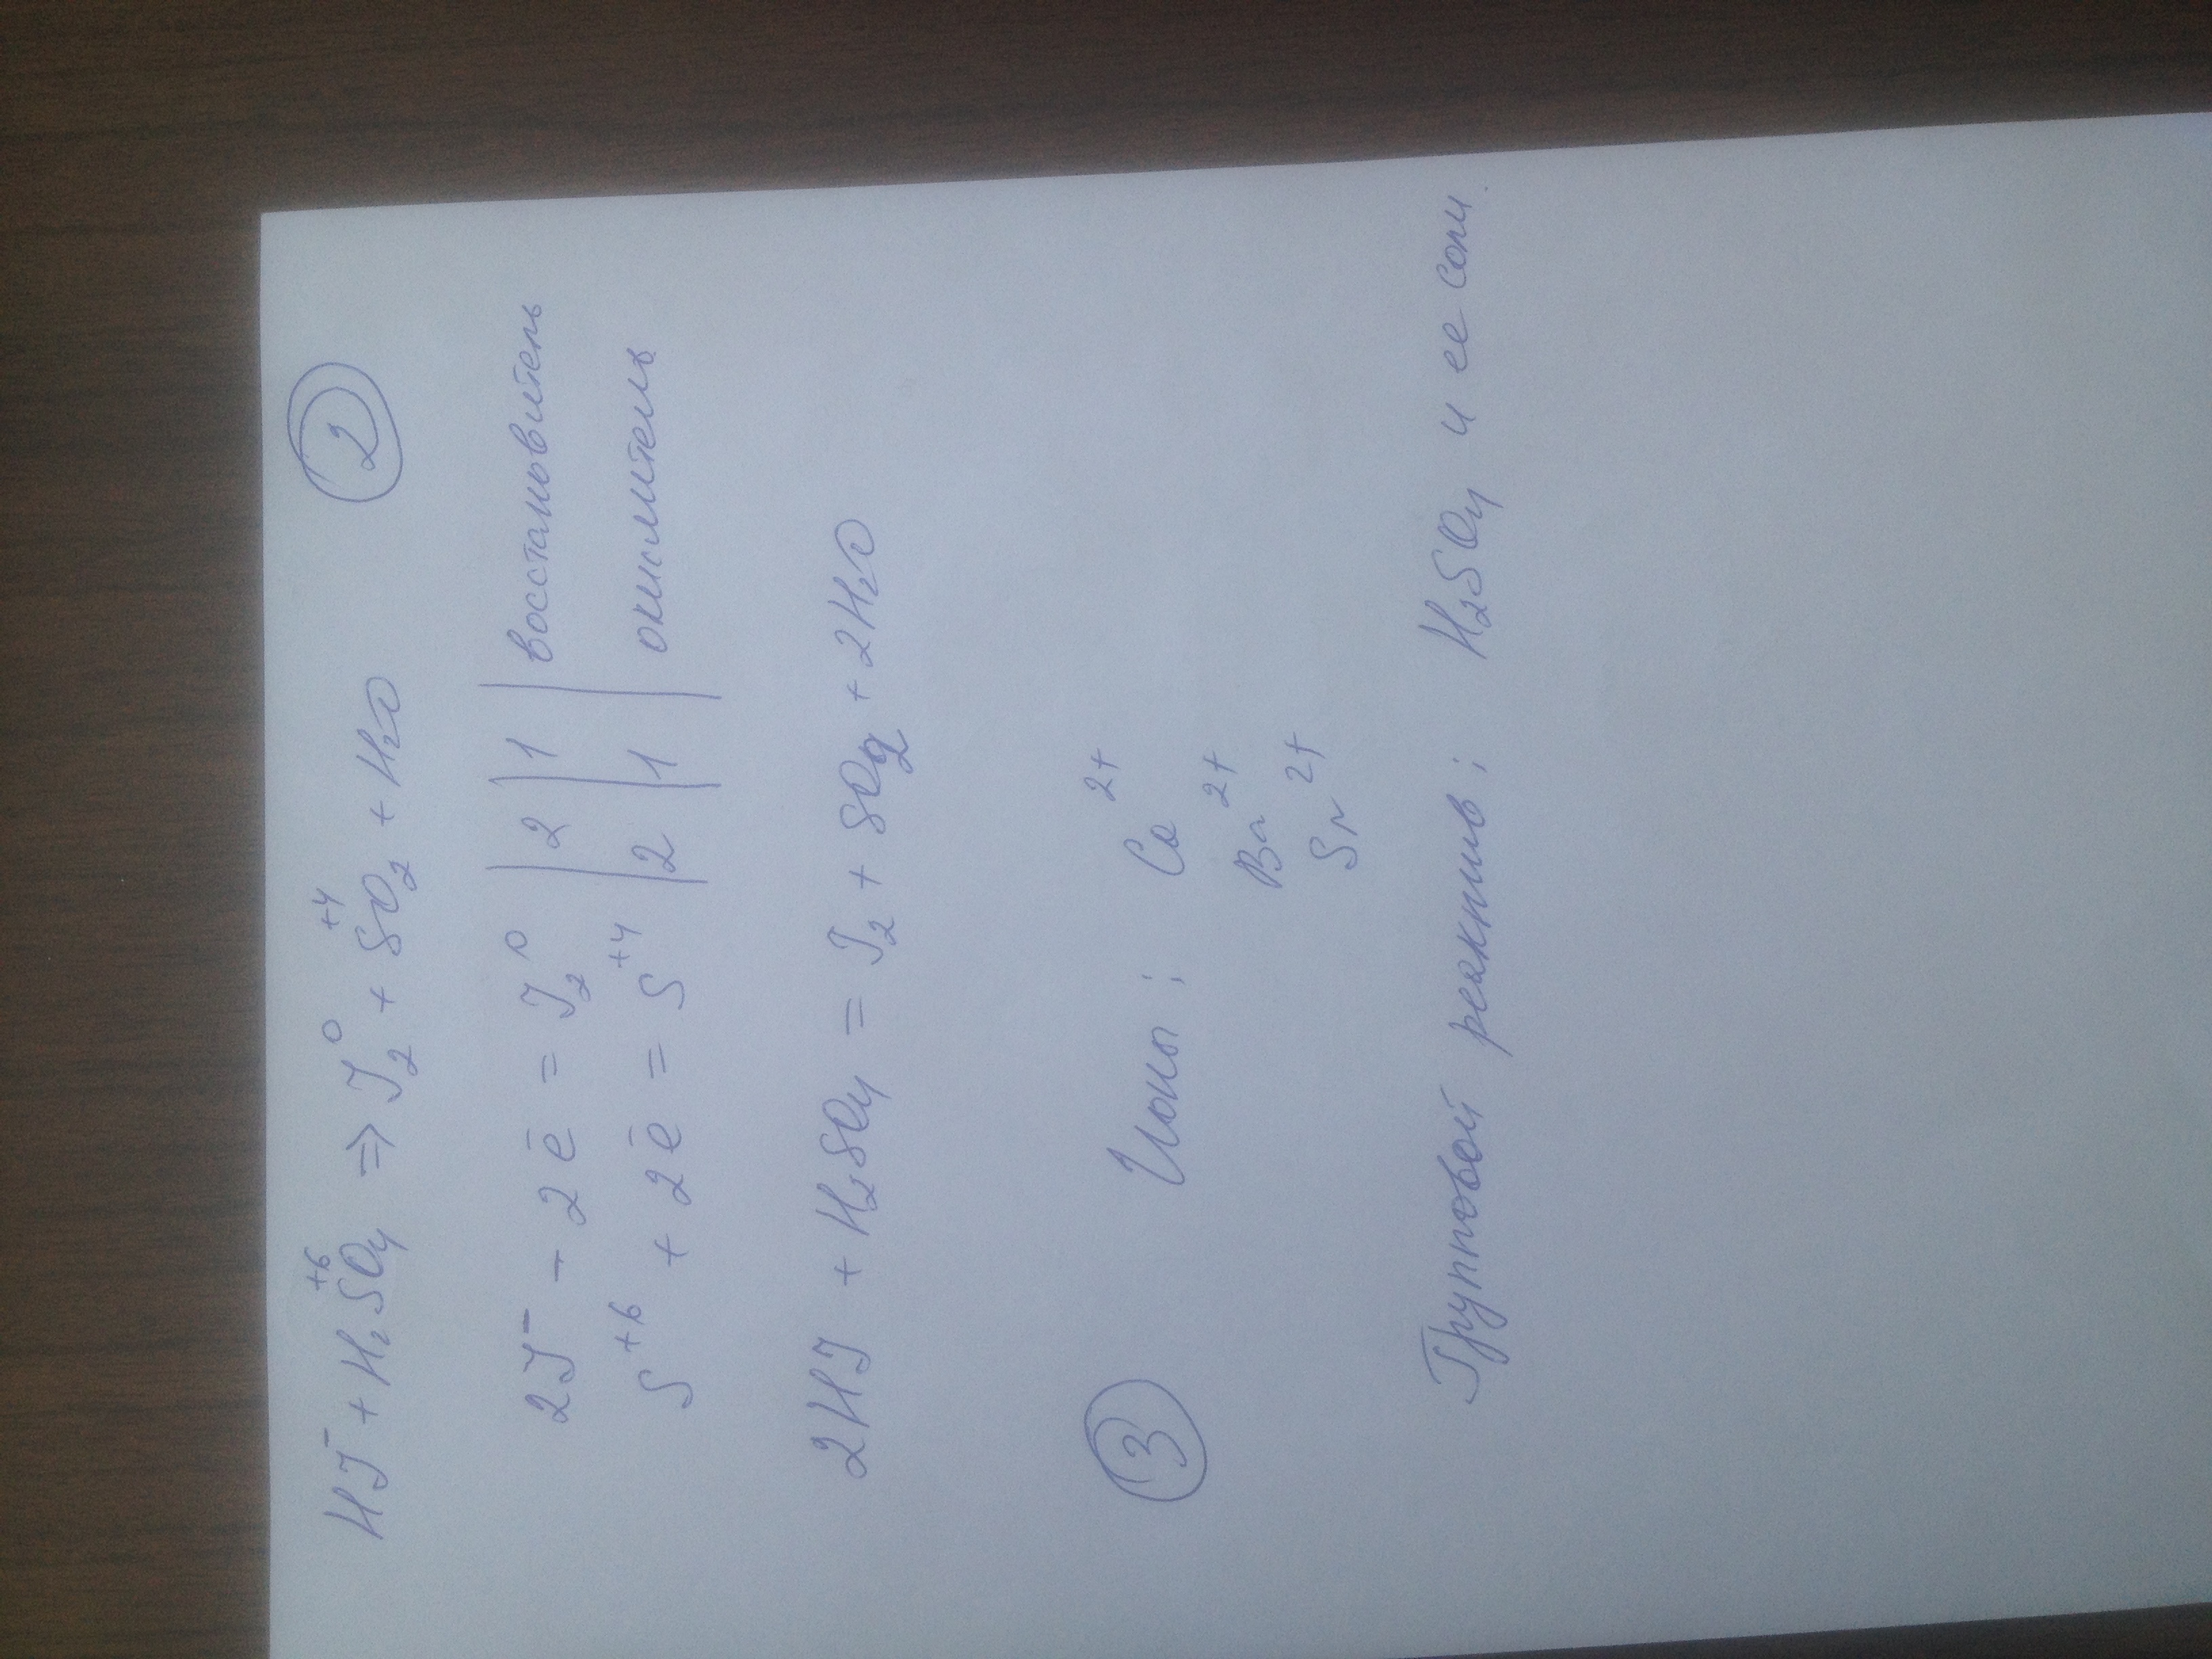 2
HJ⁻ + H₂S⁺⁶O₄ ⇒ J₂⁰ + S⁺⁴O₂ + H₂O
2J⁻ - 2ē = J₂⁰ | 2 | 1 | восстановитель
S⁺⁶ + 2ē = S⁺⁴ | 2 | 1 | окислитель
2HJ + H₂SO₄ = J₂ + SO₂ + 2H₂O
3 Ионы: Ca²⁺
Ba²⁺
Sr²⁺
Групповой реактив: H₂SO₄ и ее соли.